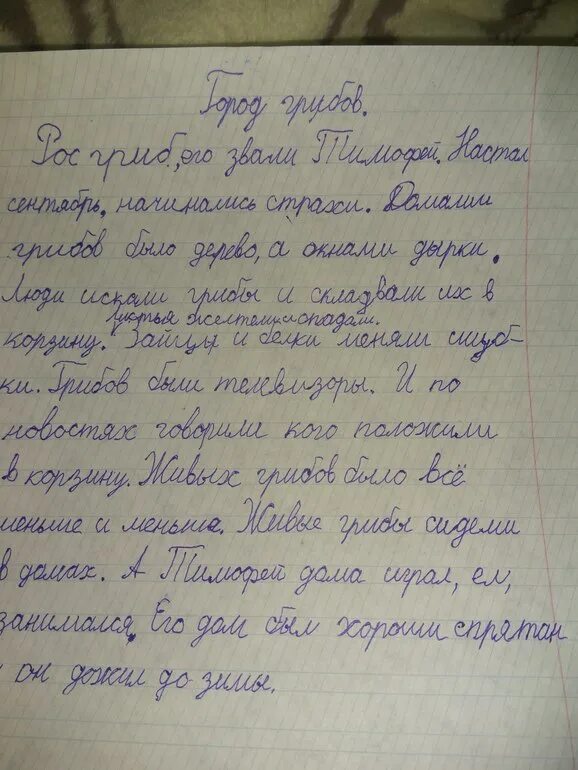 Город грибов.
Рос гриб, его звали Тимофей. Настал
сентябрь, начинались страхи. Домами
грибов было дерево, а окнами дырки.
Люди искали грибы и складвали их в
листья желтели и опадали.
корзину. Зайцы и белки меняли шуб-
ки. Грибов были телевизоры. И по
новостях говорили кого положили
в корзину. Живых грибов было всё
меньше и меньше. Живые грибы сидели
в домах. А Тимофей дома играл, ел,
занимался. Его дом был хороши спрятан
и он дожил до зимы.